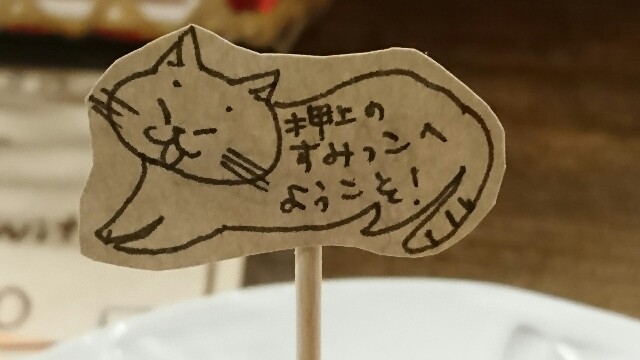 押上の
すみっこへ
ようこそ!